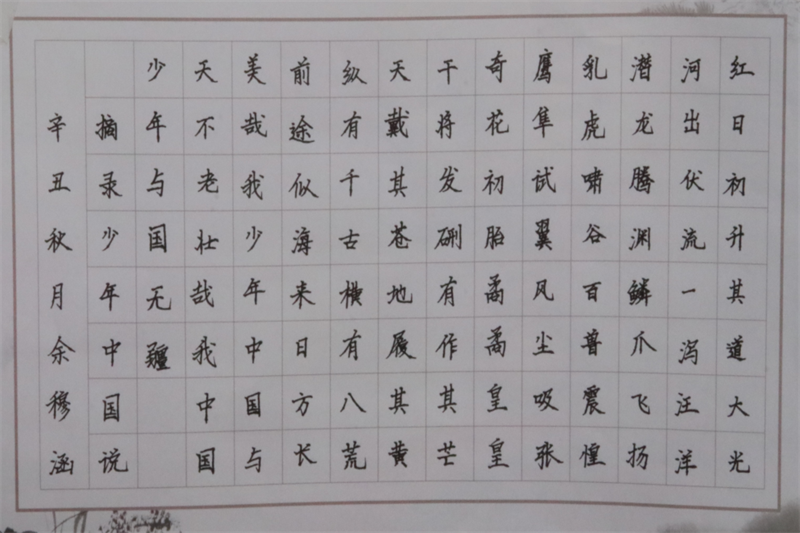 红日初升其道大光
河出伏流一泻汪洋
潜龙腾渊鳞爪飞扬
乳虎啸谷百兽震惶
鹰隼试翼风尘吸张
奇花初胎矞矞皇皇
干将发硎有作其芒
天戴其苍地履其黄
纵有千古横有八荒
前途似海来日方长
美哉我少年中国与
天不老壮哉我中国
少年与国无疆
摘录少年中国说
辛丑秋月余穆涵